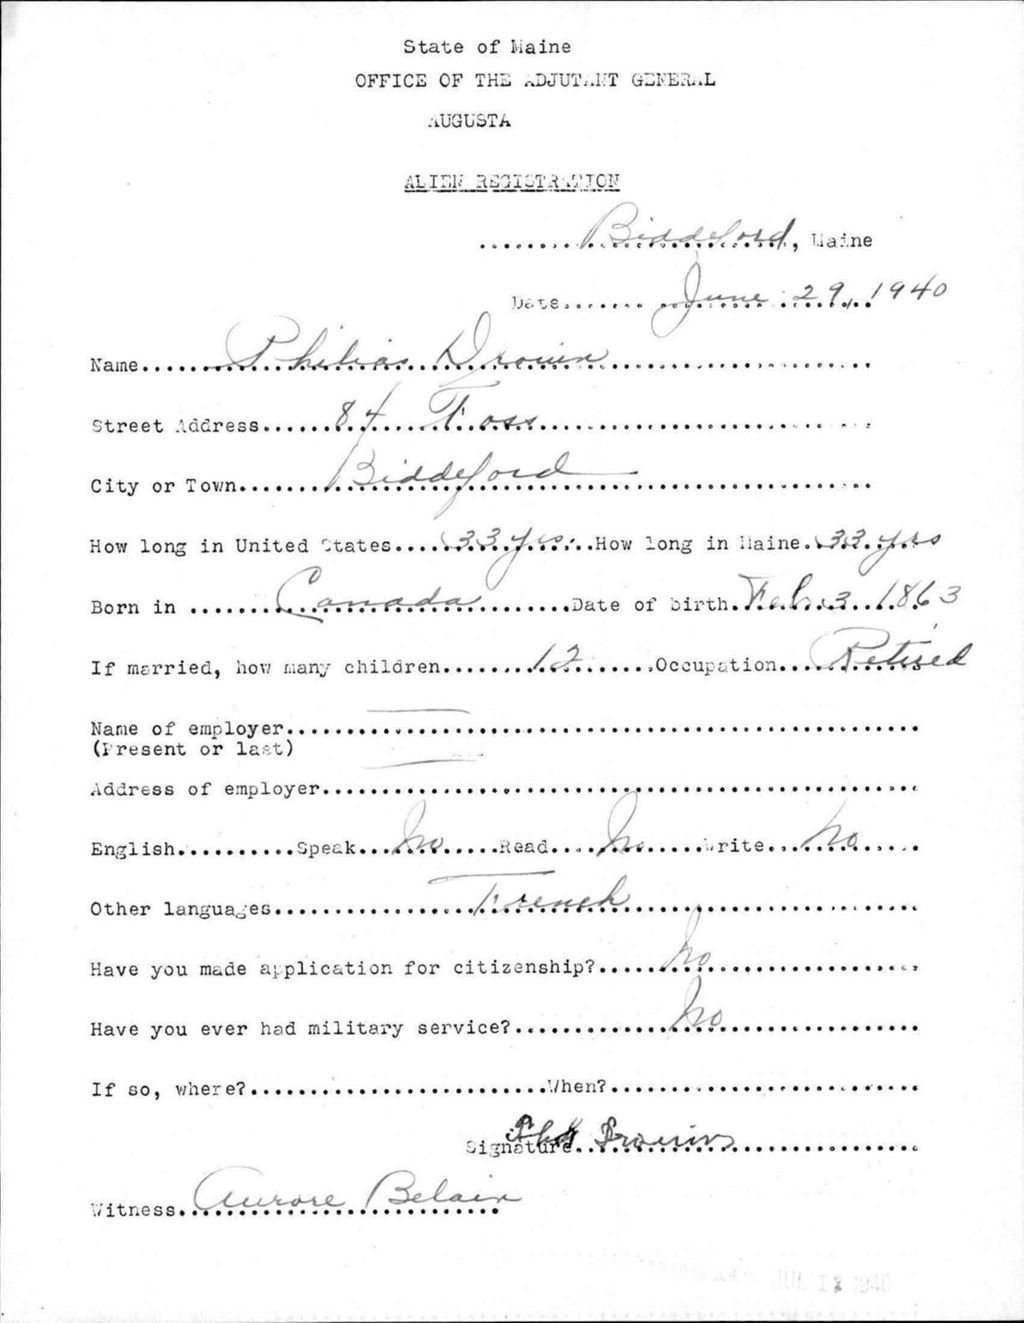 State of Maine
OFFICE OF THE ADJUTANT GENERAL
AUGUSTA
ALIEN REGISTRATION
Biddeford, Maine
Date June 29, 1940
Name Philias Drouin
Street Address 84 Foss
City or Town Biddeford
How long in United States 33 yrs. How long in Maine 33 yrs
Born in Canada Date of birth Feb. 3 1863
If married, how many children 12 Occupation Retired
Name of employer
(Present or last)
Address of employer
English Speak No Read No Write No
Other languages French
Have you made application for citizenship? No
Have you ever had military service? No
If so, where? When?
Signature Drouin
Witness Aurore Belair
JUL 1940